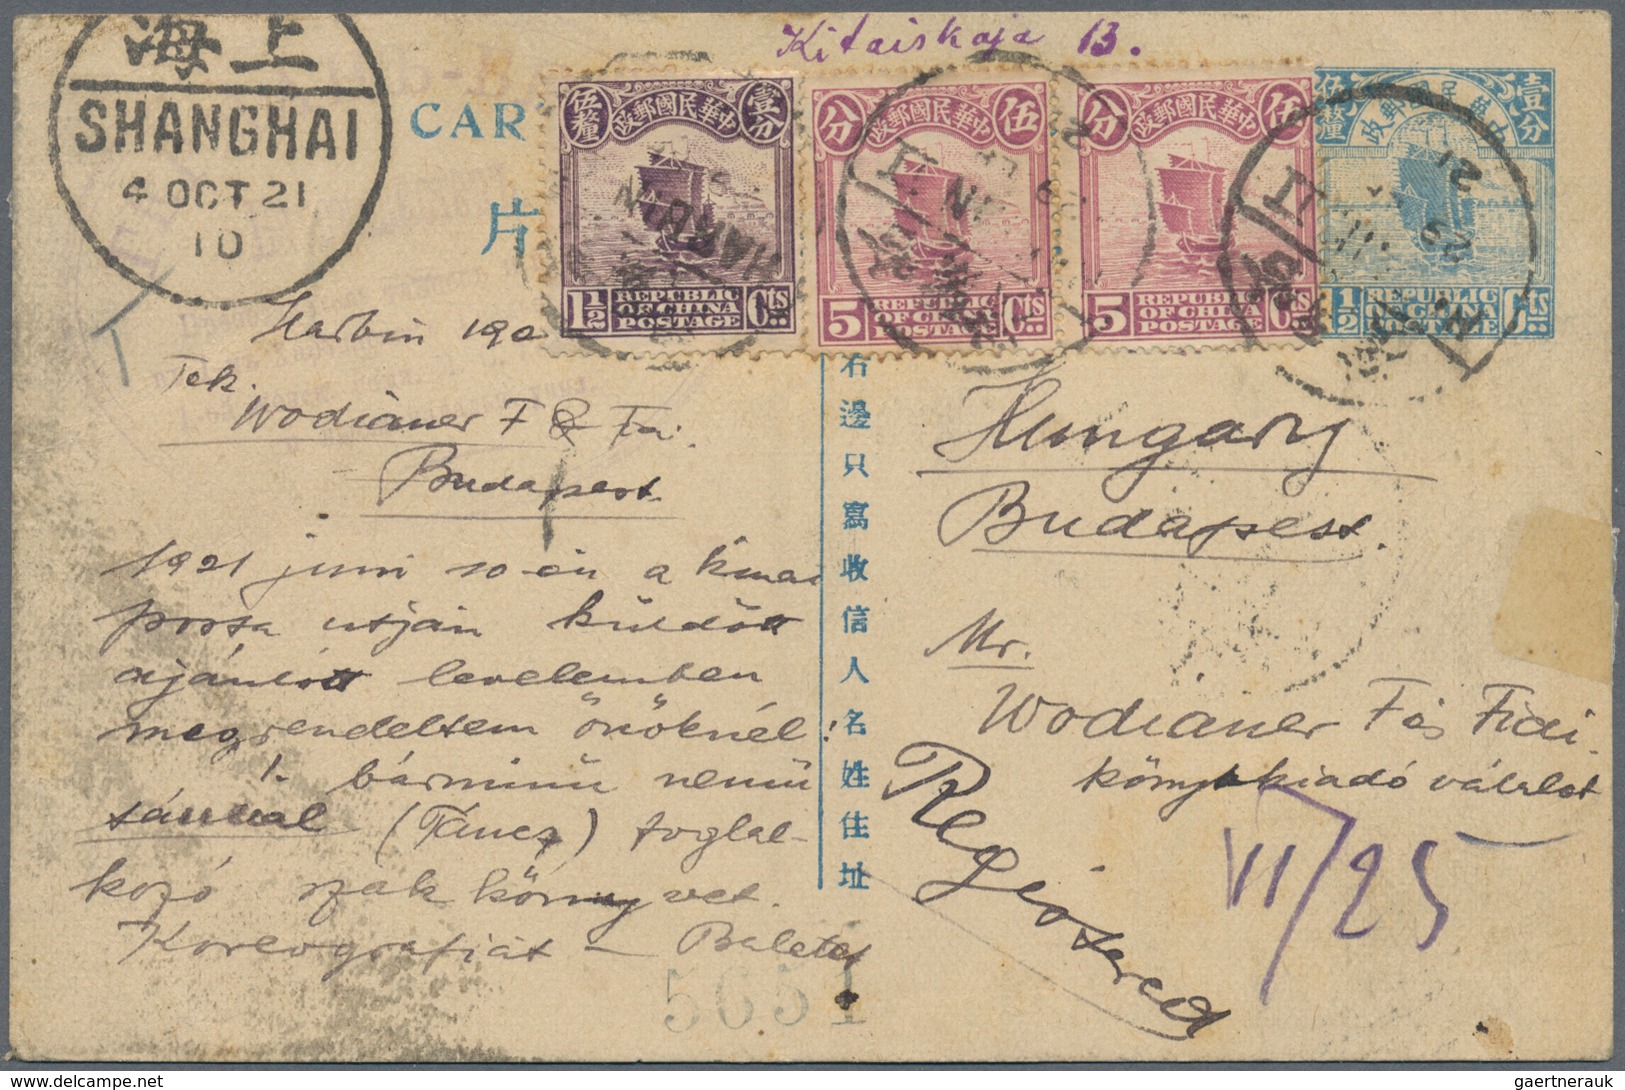 海上
SHANGHAI
4 OCT 21
10
Kitaiskaja 13.
CAR
片
伍釐 壹分
政郵國民華中
1½ REPUBLIC OF CHINA POSTAGE Cts
分 伍
政郵國民華中
5 REPUBLIC OF CHINA POSTAGE Cts
分 伍
政郵國民華中
5 REPUBLIC OF CHINA POSTAGE Cts
伍釐 壹分
1½ REPUBLIC OF CHINA POSTAGE Cts
HARBIN
Harbin 192
Tek.
Wodianer F & Fai.
Budapest
1921 juni 10-én a kinai
posta utján küldött
ajánlott levelemben
megrendeltem önöknél!
1. bárminű nemű
tánccal (Táncz) foglal-
kozó szak könyvet.
Koreografiát – Baletet
右邊只寫收信人名姓住址
Hungary
Budapest.
Mr.
Wodianer F és Fiai.
könyvkiadó vállalat
Registered
VI/25
5651
gaertnerauk / delcampe.net